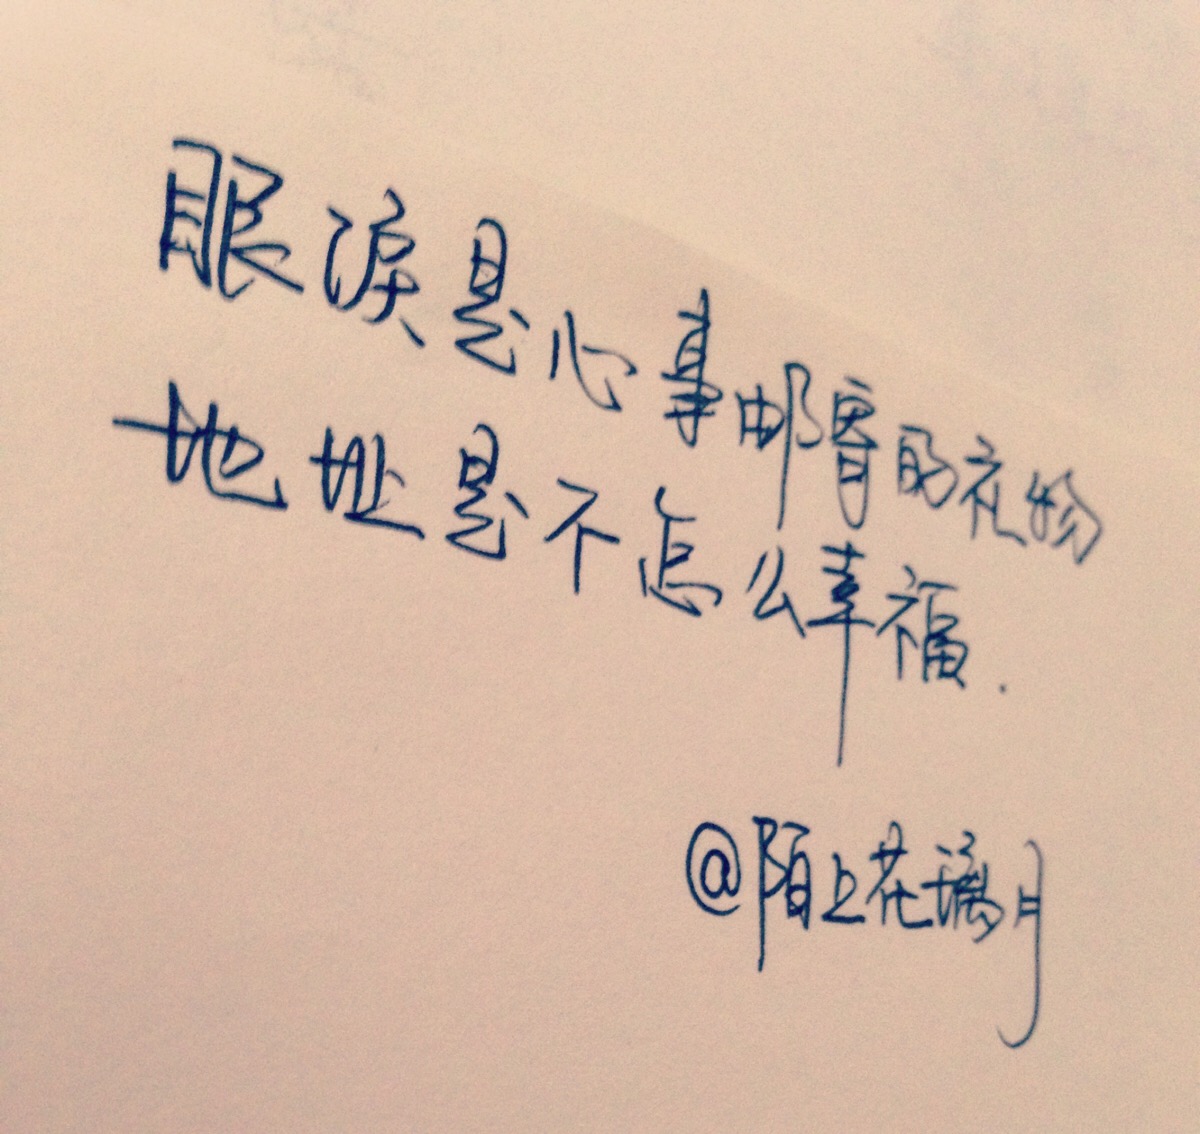 眼淚是心事邮寄的礼物
地址是不怎么幸福.
@陌上花璃月